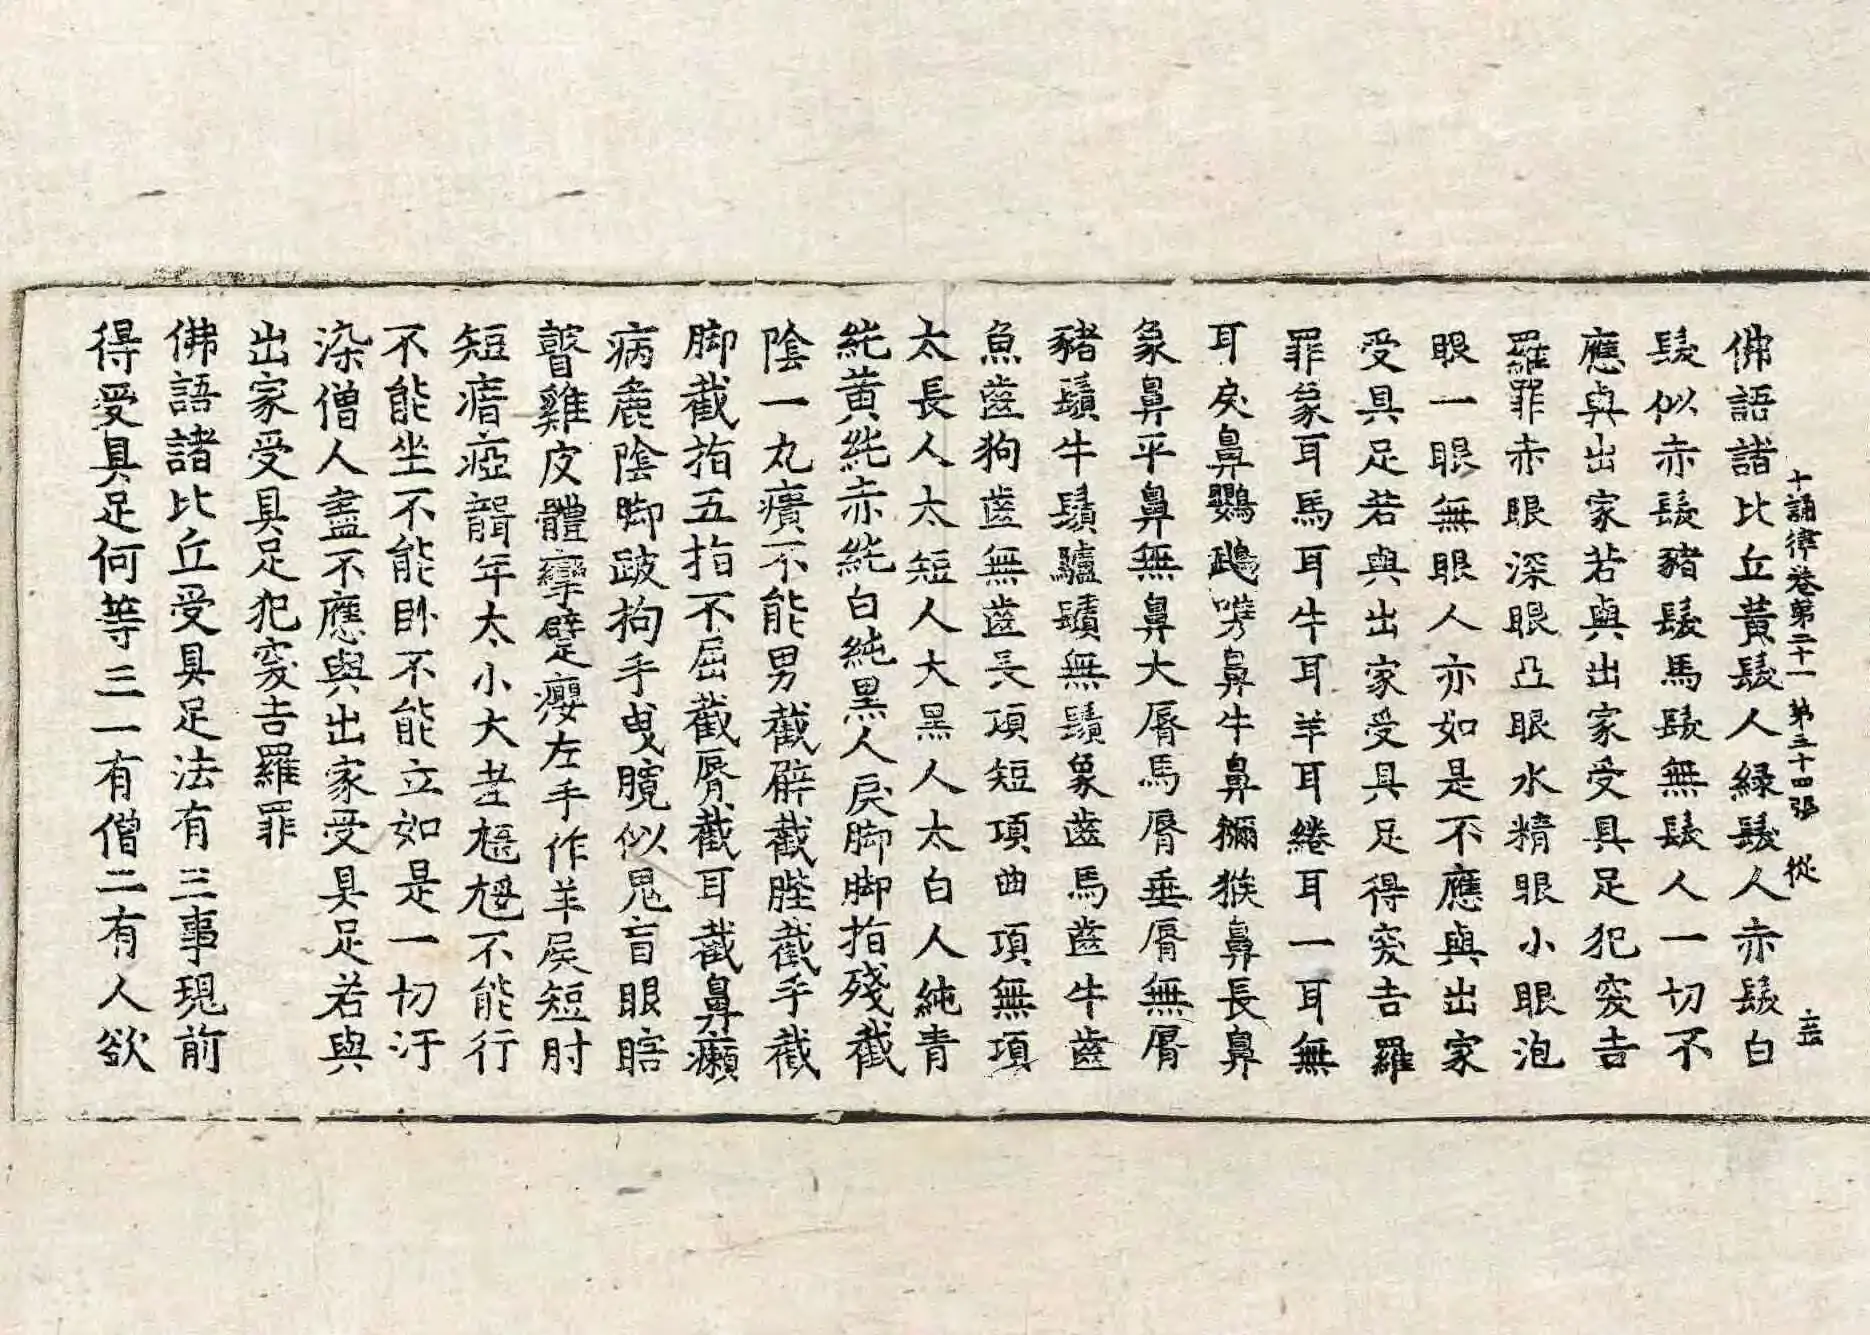 十誦律卷第二十一 第三十四張 從
佛語諸比丘黃髮人綠髮人赤髮白
髮似赤髮豬髮馬髮無髮人一切不
應與出家若與出家受具足犯突吉
羅罪赤眼深眼凸眼水精眼小眼泡
眼一眼無眼人亦如是不應與出家
受具足若與出家受具足得突吉羅
罪象耳馬耳牛耳羊耳綣耳一耳無
耳戾鼻鸚鵡嘴鼻牛鼻獼猴鼻長鼻
象鼻平鼻無鼻大脣馬脣垂脣無脣
豬鬚牛鬚驢鬚無鬚象齒馬齒牛齒
魚齒狗齒無齒長項短項曲項無項
太長人太短人太黑人太白人純青
純黃純赤純白純黑人戾脚脚指殘截
陰一丸㿗不能男截臂截髀截手截
脚截指五指不屈截脣截耳截鼻癩
病麁陰脚跛拘手曳髖似鬼盲眼瞎
瞽雞皮體攣躄癭左手作羊屎短肘
短瘖瘂聾年太小大老尪尪不能行
不能坐不能臥不能立如是一切汙
染僧人盡不應與出家受具足若與
出家受具足犯突吉羅罪
佛語諸比丘受具足法有三事現前
得受具足何等三一有僧二有人欲